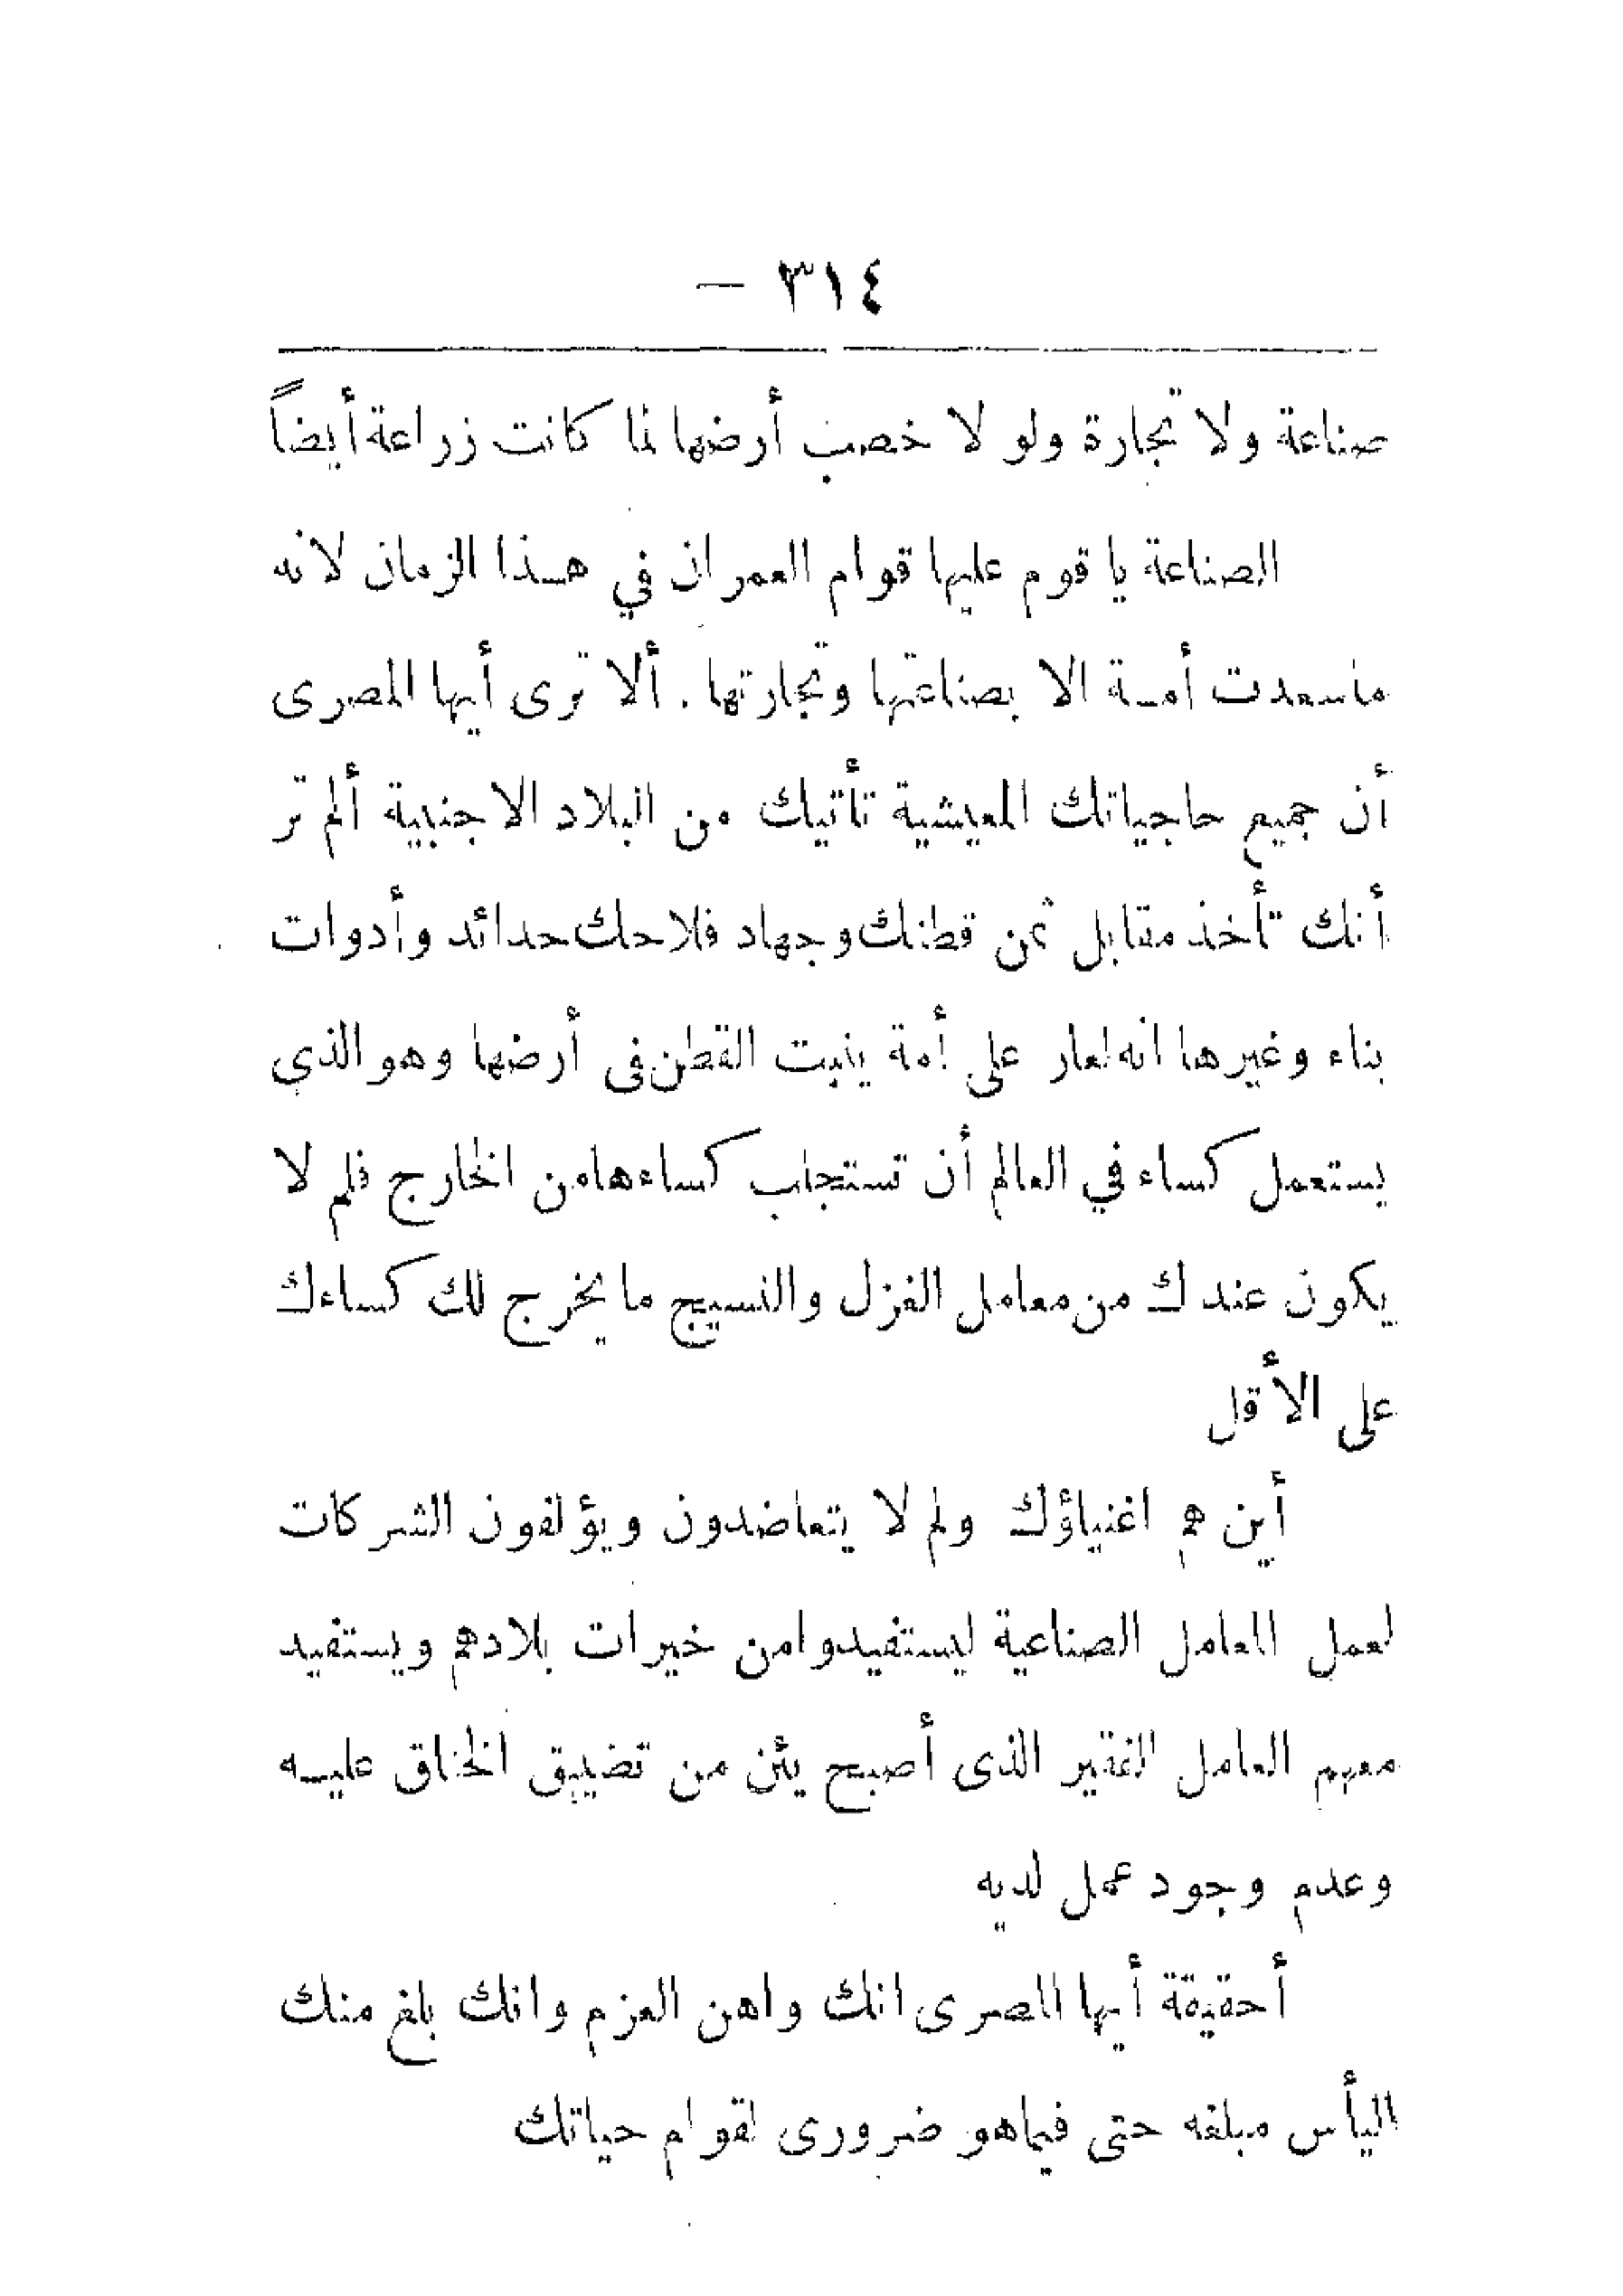 ٣١٤ —
صناعة ولا تجارة ولو لا خصب أرضها لما كانت زراعة أيضاً
الصناعة يا قوم عليها قوام العمران في هـذا الزمان لانه
ماسعدت أمـة الا بصناعتها وتجارتها . ألا ترى أيها المصرى
أن جميع حاجياتك المعيشية تأتيك من البلاد الاجنبية ألم تر
أنك تأخذ مقابل ثمن قطنك وجهاد فلاحك حدائد وأدوات
بناء وغيرها انه لعار على أمة ينبت القطن فى أرضها وهو الذي
يستعمل كساء في العالم أن تستجلب كساءها من الخارج فلم لا
يكون عندك من معامل الغزل والنسيج ما يخرج لك كساءك
على الأقل
أين هم اغنياؤك ولم لا يتعاضدون ويؤلفون الشركات
لعمل المعامل الصناعية ليستفيدوا من خيرات بلادهم ويستفيد
معهم العامل الفقير الذى أصبح يئن من تضييق الخناق عليـه
وعدم وجود عمل لديه
أحقيقة أيها المصرى انك واهن العزم وانك بلغ منك
اليأس مبلغه حتى فيماهو ضرورى لقوام حياتك